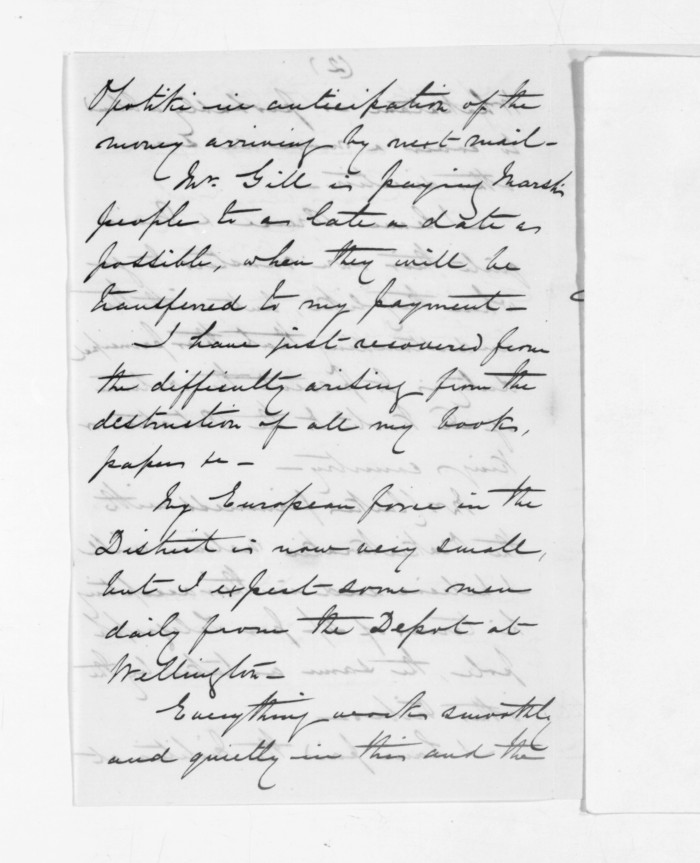 (2)
Opotiki in anticipation of the
money arriving by next mail -
Mr. Gill is paying Marsh's
people to as late a date as
possible, when they will be
transferred to my payment -
I have just recovered from
the difficulty arising from the
destruction of all my books,
papers &c -
My European force in the
District is now very small,
but I expect some men
daily from the Depot at
Wellington -
Everything works smoothly
and quietly in this and the